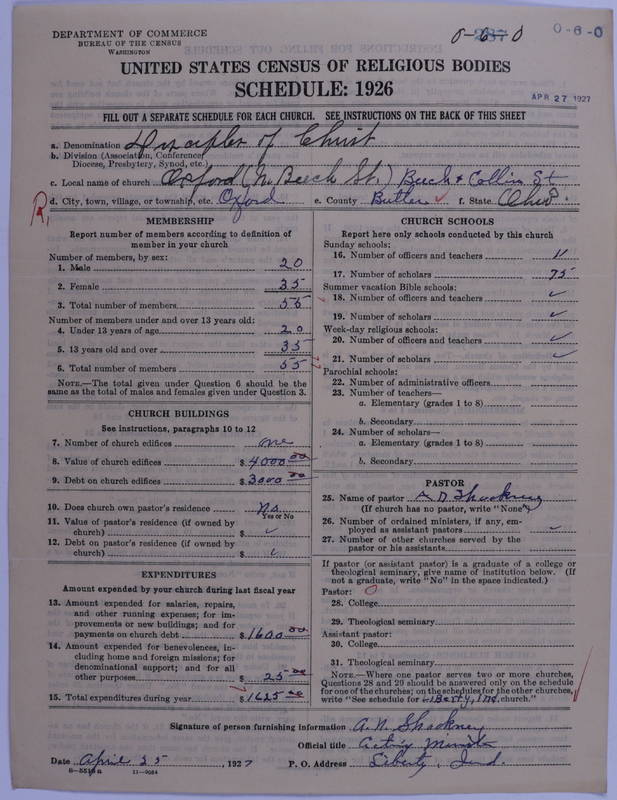 DEPARTMENT OF COMMERCE
BUREAU OF THE CENSUS
WASHINGTON
0-6-0
287
0-6-0
UNITED STATES CENSUS OF RELIGIOUS BODIES
SCHEDULE: 1926
APR 27 1927
FILL OUT A SEPARATE SCHEDULE FOR EACH CHURCH. SEE INSTRUCTIONS ON THE BACK OF THIS SHEET
a. Denomination Disciples of Christ
b. Division (Association, Conference, Diocese, Presbytery, Synod, etc.)
c. Local name of church Oxford (N. Beech St.) Beech & Collins St
d. City, town, village, or township, etc. Oxford e. County Butler f. State Ohio
R,
MEMBERSHIP
Report number of members according to definition of
member in your church
Number of members, by sex:
1. Male 20
2. Female 35
3. Total number of members 55
Number of members under and over 13 years old:
4. Under 13 years of age 20
5. 13 years old and over 35
6. Total number of members 55
NOTE.—The total given under Question 6 should be the
same as the total of males and females given under Question 3.
CHURCH BUILDINGS
See instructions, paragraphs 10 to 12
7. Number of church edifices one
8. Value of church edifices $ 4000.00
9. Debt on church edifices $ 3000.00
10. Does church own pastor's residence No
Yes or No
11. Value of pastor's residence (if owned by
church) $ ✓
12. Debt on pastor's residence (if owned by
church) $ ✓
EXPENDITURES
Amount expended by your church during last fiscal year
13. Amount expended for salaries, repairs,
and other running expenses; for im-
provements or new buildings; and for
payments on church debt $ 1600.00
14. Amount expended for benevolences, in-
cluding home and foreign missions; for
denominational support; and for all
other purposes $ 25.00
15. Total expenditures during year $ 1625.00
CHURCH SCHOOLS
Report here only schools conducted by this church
Sunday schools:
16. Number of officers and teachers 11
17. Number of scholars 75
Summer vacation Bible schools:
18. Number of officers and teachers ✓
19. Number of scholars ✓
Week-day religious schools:
20. Number of officers and teachers ✓
21. Number of scholars ✓
Parochial schools:
22. Number of administrative officers
23. Number of teachers—
a. Elementary (grades 1 to 8)
b. Secondary
24. Number of scholars—
a. Elementary (grades 1 to 8)
b. Secondary
PASTOR
25. Name of pastor A N Shockney
(If church has no pastor, write "None")
26. Number of ordained ministers, if any, em-
ployed as assistant pastors ✓
27. Number of other churches served by the
pastor or his assistants
If pastor (or assistant pastor) is a graduate of a college or
theological seminary, give name of institution below. (If
not a graduate, write "No" in the space indicated.)
Pastor: O
28. College
29. Theological seminary
Assistant pastor:
30. College
31. Theological seminary
NOTE.—Where one pastor serves two or more churches,
Questions 28 and 29 should be answered only on the schedule
for one of the churches; on the schedules for the other churches,
write "See schedule for Liberty, Ind. church."
Signature of person furnishing information A. N. Shockney
Official title Acting Minister
Date April 25, 1927 P. O. Address Liberty, Ind.
11—9054